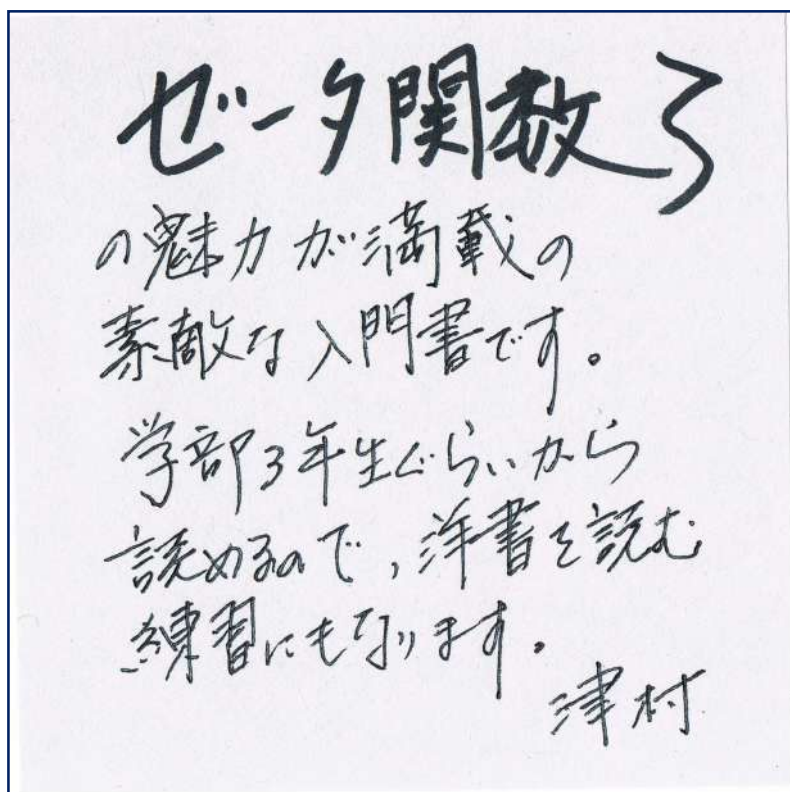 ゼータ関数ζ
の魅力が満載の
素敵な入門書です。
学部3年生ぐらいから
読めるので、洋書を読む
練習にもなります。
津村